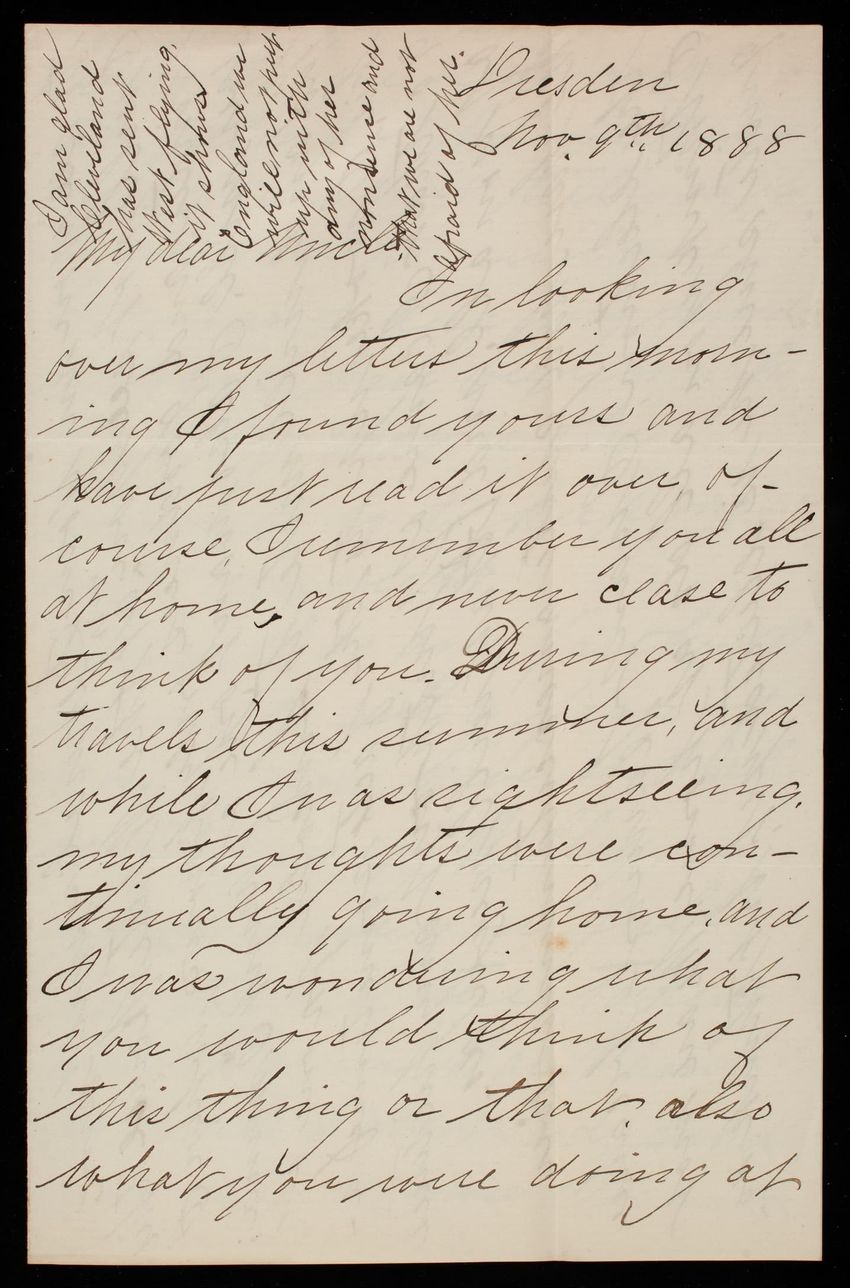 Dresden
Nov. 9th. 1888
My dear Uncle
In looking
over my letters this morn-
ing I found yours and
have just read it over, of-
course, I remember you all
at home, and never cease to
think of you. During my
travels this summer, and
while I was sightseeing,
my thoughts were con-
tinually going home, and
I was wondering what
you would think of
this thing or that, also
what you were doing at
I am glad
Cleveland
has sent
West flying,
it shows
England we
will not put
up with
any of her
nonsense and
that we are not
afraid of her.